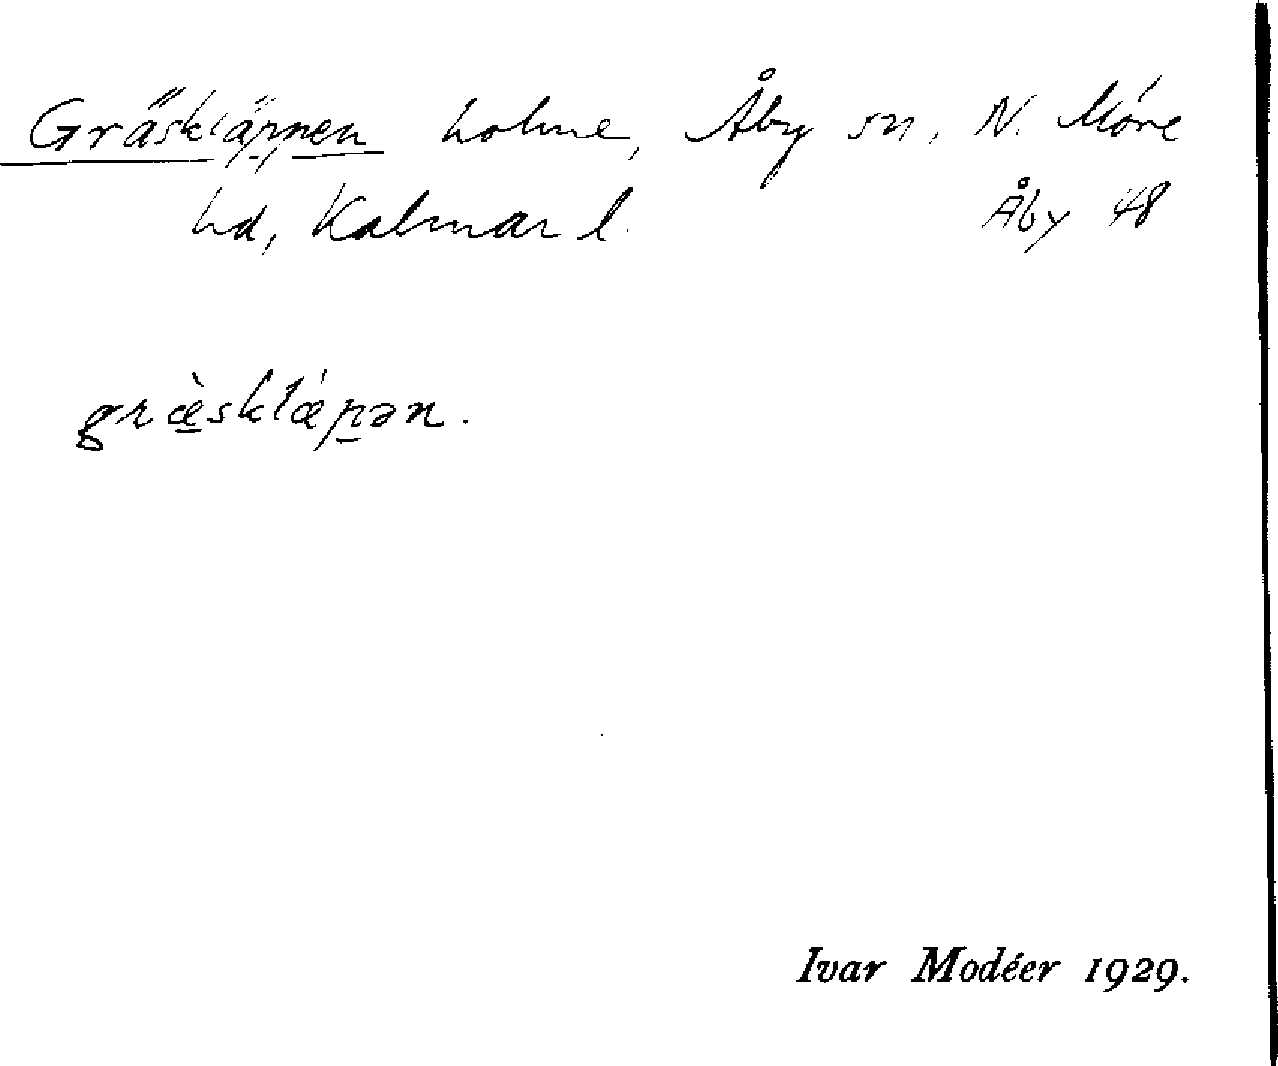 Gräskläppen holme, Åby sn, N. Möre
hd, Kalmar l. Åby 48
græ̀sklǽpən.
Ivar Modéer 1929.